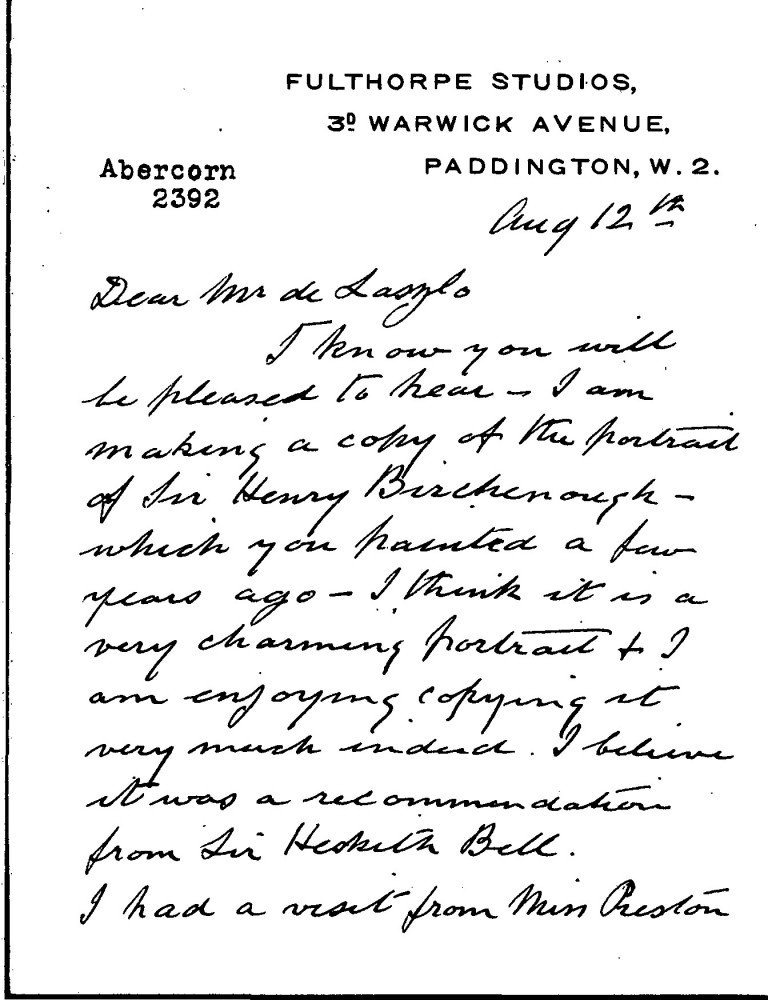 FULTHORPE STUDIOS,
3D WARWICK AVENUE,
PADDINGTON, W. 2.
Abercorn
2392
Aug 12th
Dear Mr de Laszlo
I know you will
be pleased to hear - I am
making a copy of the portrait
of Sir Henry Birchenough -
which you painted a few
years ago - I think it is a
very charming portrait & I
am enjoying copying it
very much indeed. I believe
it was a recommendation
from Sir Hesketh Bell.
I had a visit from Miss Preston